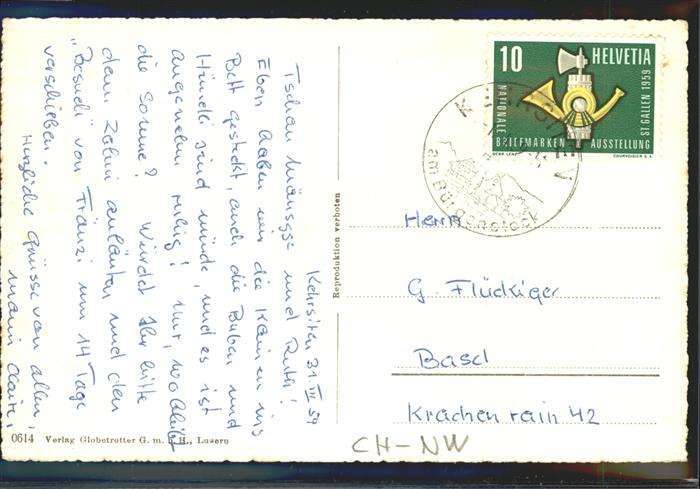 Kehrsiten 31. III 59
Tschau Mäusge und Ruth!
Eben haben wir die Kleinen ins
Bett gesteckt, auch die Buben und
Hündi sind müde, und es ist
angenehm ruhig! Nur, wo bleibt
die Sonne? Würdet Ihr bitte
dem Zahni anläuten und den
"Besuch" von Fränzi um 14 Tage
verschieben.
Herzliche Grüsse von allen,
10 HELVETIA
NATIONALE BRIEFMARKEN AUSSTELLUNG ST. GALLEN 1959
COURVOISIER S.A.
am Bürgenstock
Herrn
G. Flückiger
Basel
Krachenrain 42
Reproduktion verboten
0614 Verlag Globetrotter G. m. b. H., Luzern
CH-NW